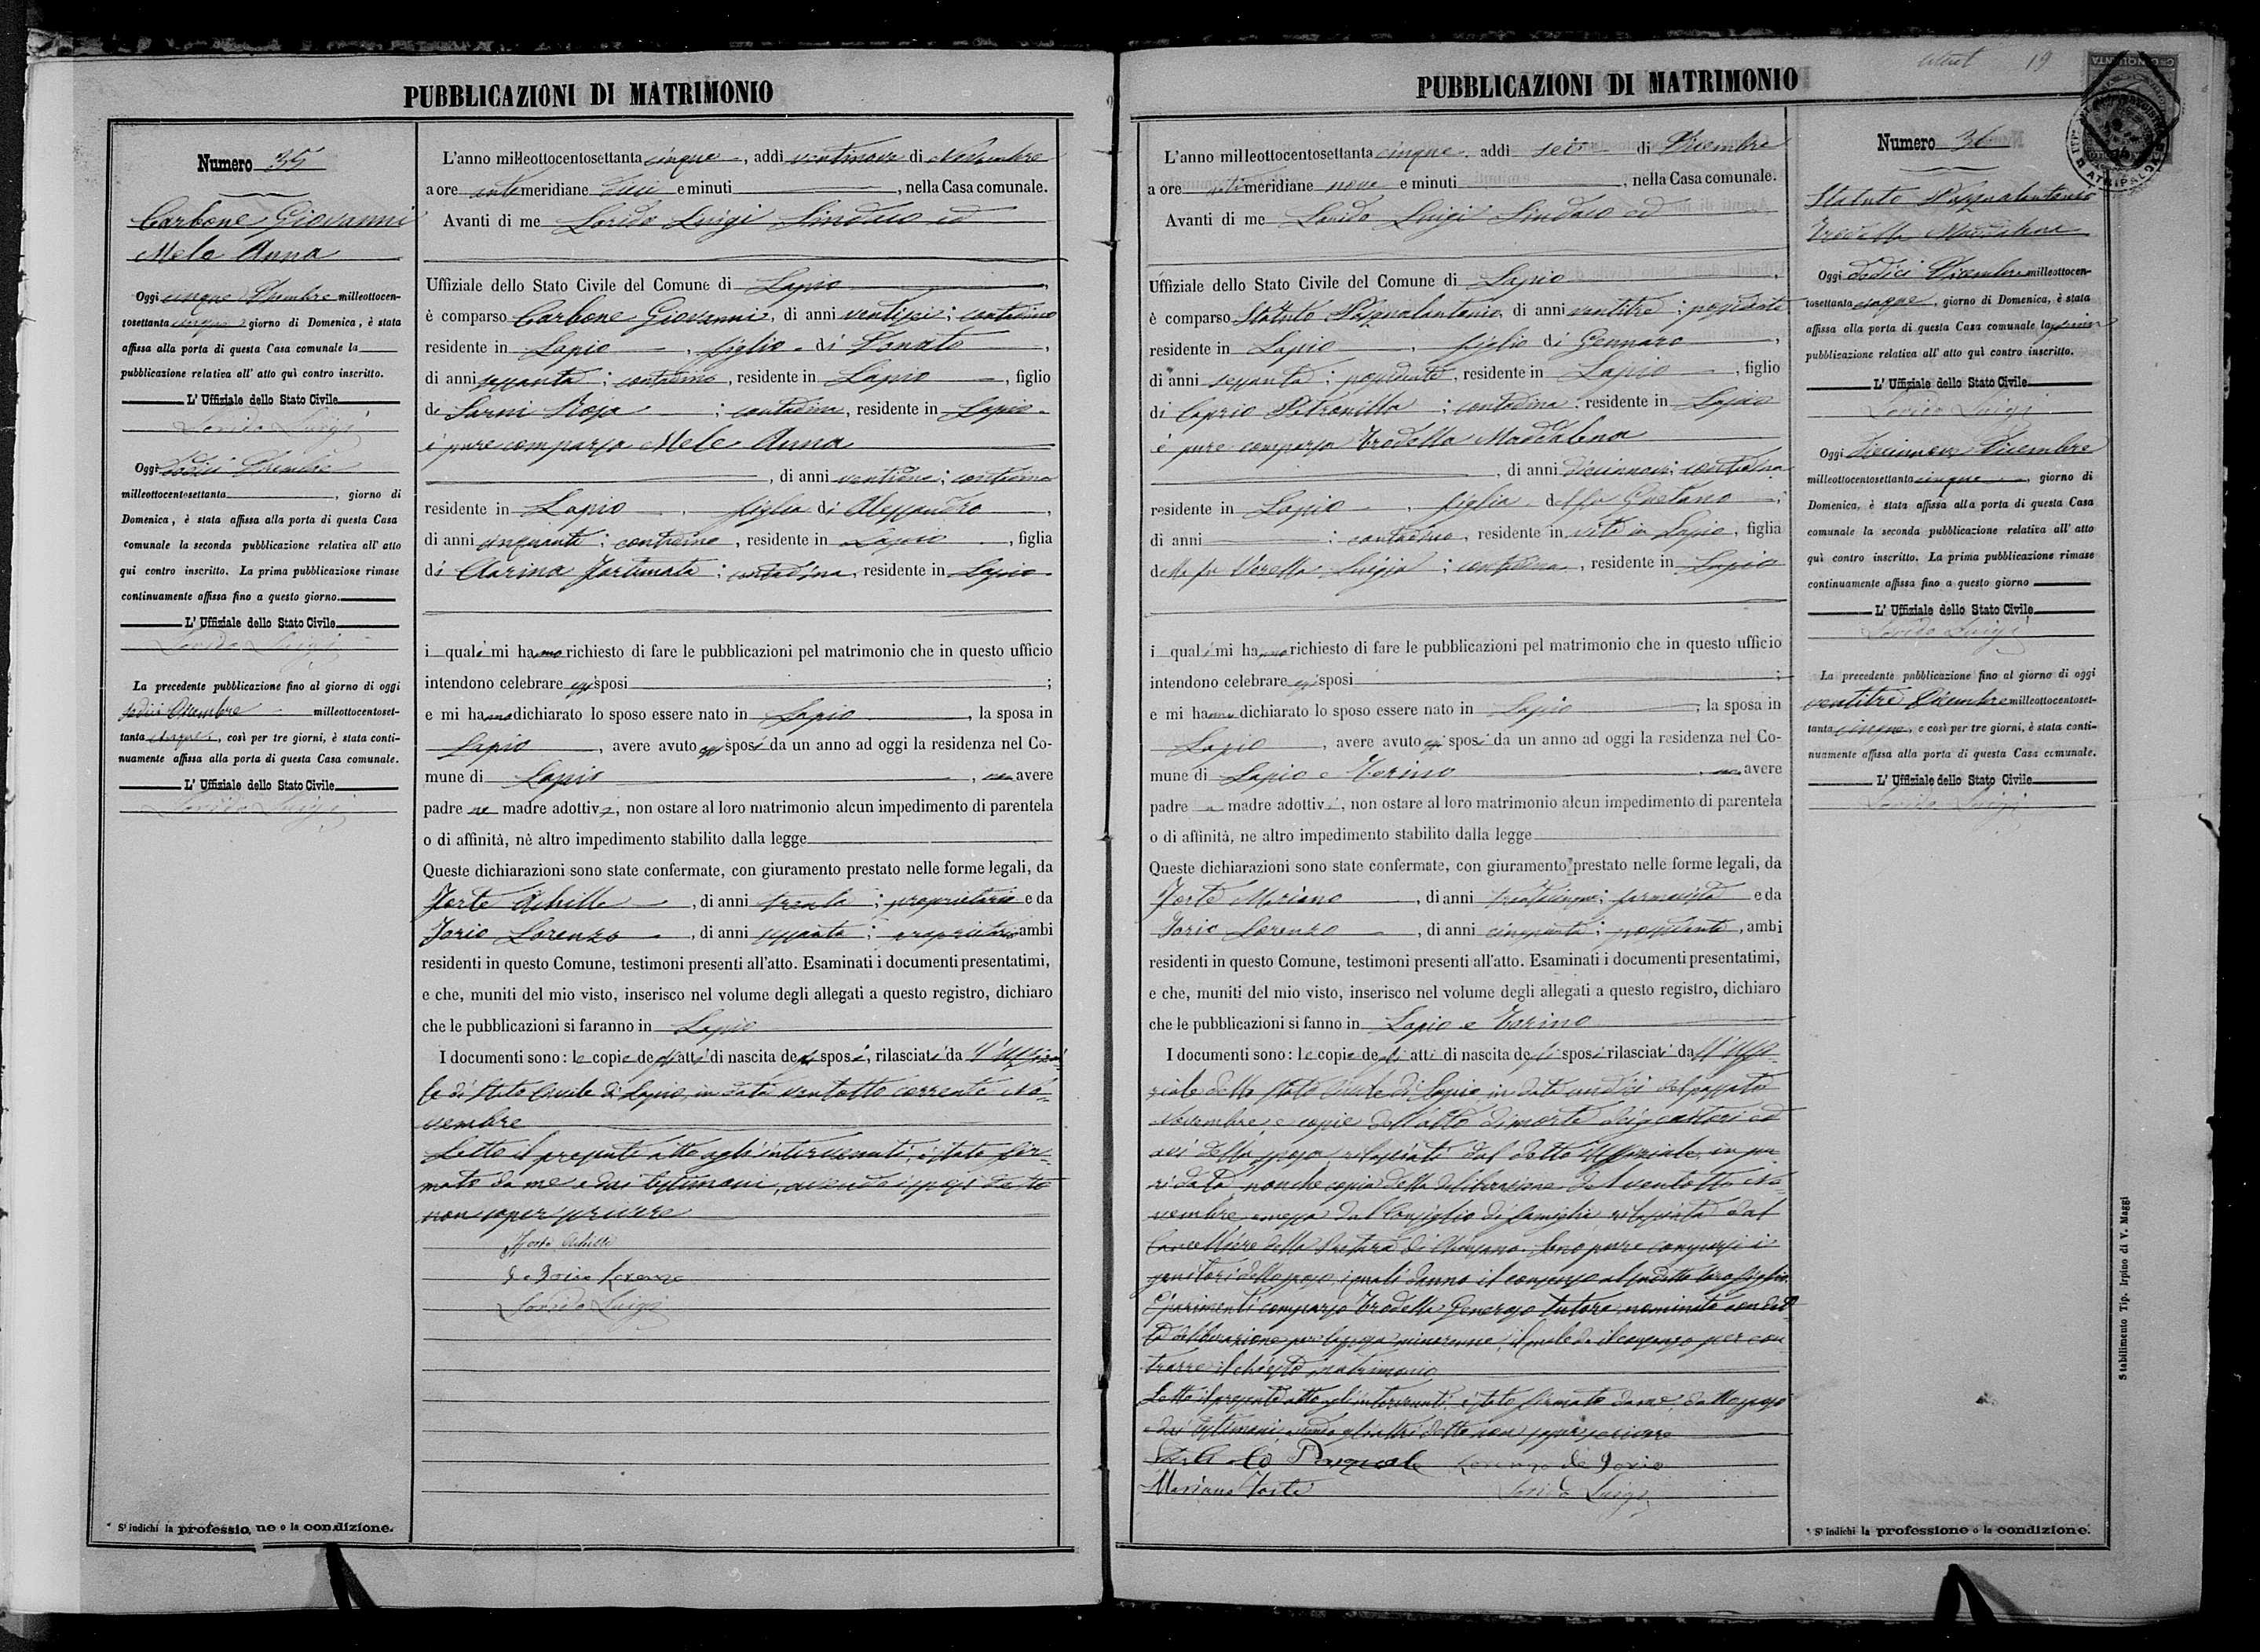 PUBBLICAZIONI DI MATRIMONIO
Numero 35
Carbone Giovanni
Mele Anna
Oggi cinque Dicembre milleottocen-
tosettanta cinque giorno di Domenica, è stata
affissa alla porta di questa Casa comunale la
pubblicazione relativa all' atto quì contro inscritto.
L' Uffiziale dello Stato Civile
Lorido Luigi
Oggi dodici Dicembre
milleottocentosettanta, giorno di
Domenica, è stata affissa alla porta di questa Casa
comunale la seconda pubblicazione relativa all' atto
qui contro inscritto. La prima pubblicazione rimase
continuamente affissa fino a questo giorno.
L' Uffiziale dello Stato Civile
Lorido Luigi
La precedente pubblicazione fino al giorno di oggi
sedici Dicembre milleottocentoset-
tanta cinque, così per tre giorni, è stata conti-
nuamente affissa alla porta di questa Casa comunale.
L' Uffiziale dello Stato Civile
Lorido Luigi
* Si indichi la professio, ne o la condizione.
L'anno milleottocentosettanta cinque, addi ventinove di Novembre
a ore antemeridiane dieci e minuti, nella Casa comunale.
Avanti di me Lorido Luigi Sindaco ed
Uffiziale dello Stato Civile del Comune di Lapio
è comparso Carbone Giovanni, di anni ventisei; contadino
residente in Lapio, figlio di Donato,
di anni sessanta; contadino, residente in Lapio, figlio
di Sarni Rosa; contadina, residente in Lapio.
è pure comparsa Mele Anna
, di anni ventidue; contadina
residente in Lapio, figlia di Alessandro,
di anni cinquanta; contadino, residente in Lapio, figlia
di Clarina Fortunata; contadina, residente in Lapio
i quali mi hanno richiesto di fare le pubblicazioni pel matrimonio che in questo ufficio
intendono celebrare essi sposi;
e mi hanno dichiarato lo sposo essere nato in Lapio, la sposa in
Lapio, avere avuto essi sposi da un anno ad oggi la residenza nel Co-
mune di Lapio, non avere
padre ne madre adottivi, non ostare al loro matrimonio alcun impedimento di parentela
o di affinità, nè altro impedimento stabilito dalla legge
Queste dichiarazioni sono state confermate, con giuramento prestato nelle forme legali, da
Forte Achille, di anni trenta; proprietario e da
Iorio Lorenzo, di anni sessanta; proprietario ambi
residenti in questo Comune, testimoni presenti all'atto. Esaminati i documenti presentatimi,
e che, muniti del mio visto, inserisco nel volume degli allegati a questo registro, dichiaro
che le pubblicazioni si faranno in Lapio
I documenti sono: le copie degli atti di nascita degli sposi, rilasciati da l'Uffizia-
le di Stato Civile di Lapio, in data ventotto corrente No-
vembre
Letto il presente atto agli intervenuti, è stato fir-
mato da me e dai testimoni, avendo i sposi detto
non saper scrivere
Forte Achille
de Iorio Lorenzo
Lorido Luigi
PUBBLICAZIONI DI MATRIMONIO
19
L'anno milleottocentosettanta cinque, addi sei di Dicembre
a ore antimeridiane nove e minuti, nella Casa comunale.
Avanti di me Lorido Luigi Sindaco ed
Uffiziale dello Stato Civile del Comune di Lapio,
è comparso Statuto Pasqualantonio, di anni ventitre; possidente
residente in Lapio, figlio di Gennaro,
di anni sessanta; possidente, residente in Lapio, figlio
di Caprio Petronilla; contadina, residente in Lapio
è pure comparsa Trodella Maddalena
, di anni diciannove; contadina
residente in Lapio, figlia del fu Gaetano;
di anni; contadino, residente in vita in Lapio, figlia
della fu Verella Luigia; contadina, residente in Lapio
i quali mi hanno richiesto di fare le pubblicazioni pel matrimonio che in questo ufficio
intendono celebrare essi sposi;
e mi hanno dichiarato lo sposo essere nato in Lapio, la sposa in
Lapio, avere avuto essi sposi da un anno ad oggi la residenza nel Co-
mune di Lapio e Torino, non avere
padre e madre adottivi, non ostare al loro matrimonio alcun impedimento di parentela
o di affinità, ne altro impedimento stabilito dalla legge
Queste dichiarazioni sono state confermate, con giuramento prestato nelle forme legali, da
Forte Mariano, di anni trentacinque; farmacista e da
Iorio Lorenzo, di anni cinquanta; possidente, ambi
residenti in questo Comune, testimoni presenti all'atto. Esaminati i documenti presentatimi,
e che, muniti del mio visto, inserisco nel volume degli allegati a questo registro, dichiaro
che le pubblicazioni si fanno in Lapio e Torino
I documenti sono: le copie degli atti di nascita degli sposi rilasciati dall'Uffi-
ziale dello Stato Civile di Lapio, in data undici del passato
Novembre, e copie dell'atto di morte dei genitori ed
avi della sposa rilasciati dal detto Uffiziale, in pa-
ri data, nonche copia della deliberazione del ventotto No-
vembre, emessa dal Consiglio di famiglia rilasciata dal
Cancelliere della Pretura di Chiusano. Sono pure comparsi i
genitori dello sposo, i quali danno il consenso al suddetto loro figlio.
È parimenti comparso Trodella Generoso tutore nominato con det-
ta deliberazione per la sposa minorenne, il quale dà il consenso per con-
trarre il chiesto matrimonio
Letto il presente atto agli intervenuti, è stato firmato da me, dallo sposo
e dai testimoni, avendo gli altri detto non saper scrivere
Statuto Pasquale Lorenzo de Iorio
Mariano Forte Lorido Luigi
Numero 36
Statuto Pasqualantonio
Trodella Maddalena
Oggi dodici Dicembre milleottocen-
tosettanta cinque, giorno di Domenica, è stata
affissa alla porta di questa Casa comunale la prima
pubblicazione relativa all' atto quì contro inscritto.
L' Uffiziale dello Stato Civile
Lorido Luigi
Oggi diciannove Dicembre
milleottocentosettanta cinque, giorno di
Domenica, è stata affissa alla porta di questa Casa
comunale la seconda pubblicazione relativa all' atto
quì contro inscritto. La prima pubblicazione rimase
continuamente affissa fino a questo giorno
L' Uffiziale dello Stato Civile
Lorido Luigi
La precedente pubblicazione fino al giorno di oggi
ventitre Dicembre milleottocentoset-
tanta cinque, e così per tre giorni, è stata conti-
nuamente affissa alla porta di questa Casa comunale.
L' Uffiziale dello Stato Civile
Lorido Luigi
* Si indichi la professione o la condizione.
Stabilimento Tip. Irpino di V. Maggi